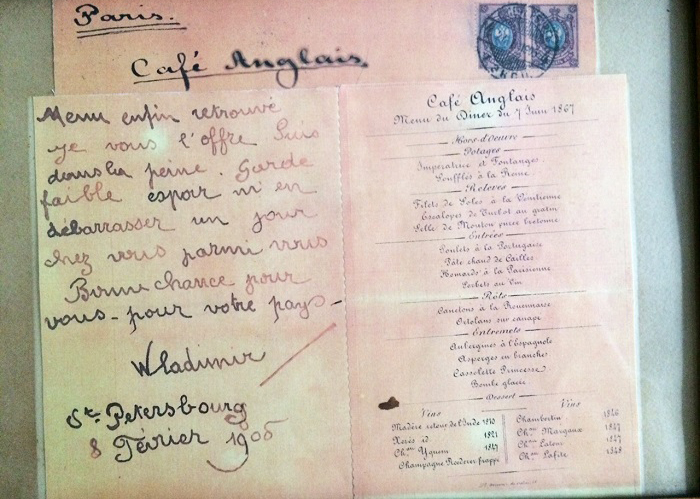 Paris.
Café Anglais
Menu enfin retrouvé
je vous l'offre Suis
dans la peine. Garde
faible espoir m'en
débarrasser un jour
chez vous parmi vous
Bonne chance pour
vous - pour votre pays -
Wladimir
St. Petersbourg
8 Février 1905
Café Anglais
Menu du Diner du 7 Juin 1867
Hors-d'oeuvre
Potages
Impératrice et Fontanges
Soufflés à la Reine
Relevés
Filets de Soles à la Vénitienne
Escalopes de Turbot au gratin
Selle de Mouton purée bretonne
Entrées
Poulets à la Portugaise
Pâté chaud de Cailles
Homards à la Parisienne
Sorbets au Vin
Rôts
Canetons à la Rouennaise
Ortolans sur canapé
Entremets
Aubergines à l'Espagnole
Asperges en branches
Cassolette Princesse
Bombe glacée
Dessert
Vins
Madère retour de l'Inde 1810
Xerès id 1821
Ch.au Yquem 1847
Champagne Roederer frappé
Vins
Chambertin 1846
Ch.au Margaux 1847
Ch.au Latour 1847
Ch.au Lafite 1848